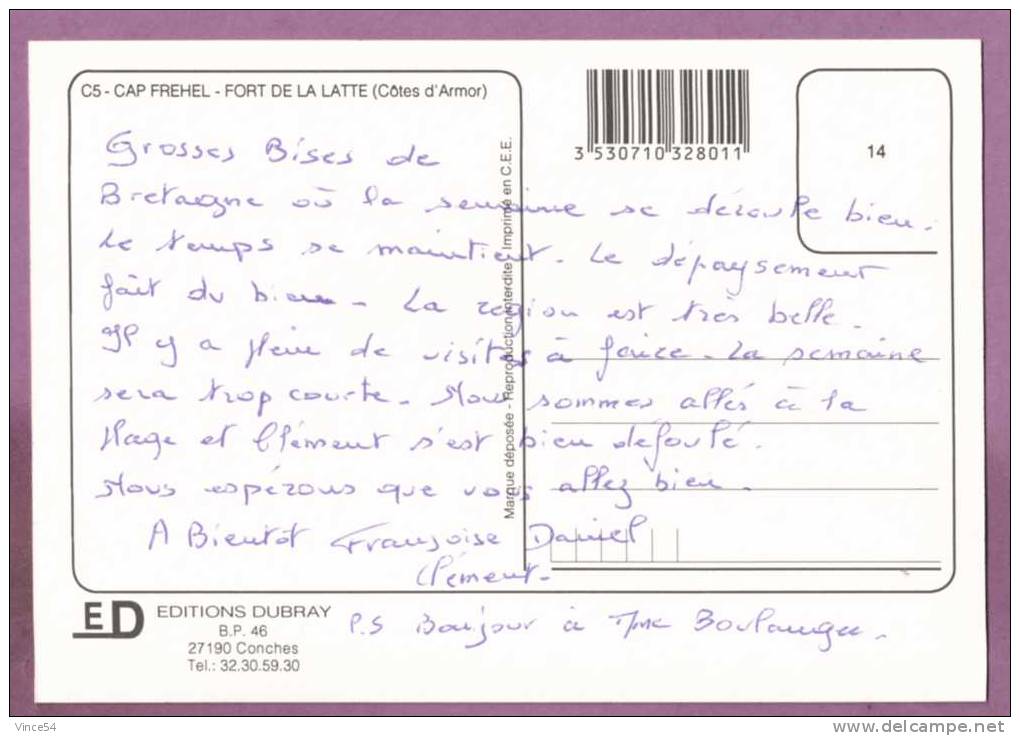 C5 - CAP FREHEL - FORT DE LA LATTE (Côtes d'Armor)
3 530710 328011
14
Grosses Bises de
Bretagne où la semaine se déroule bien.
Le temps se maintient. Le dépaysement
fait du bien. La région est très belle.
Il y a plein de visites à faire. La semaine
sera trop courte. Nous sommes allés à la
plage et Clément s'est bien défoulé.
Nous espérons que vous allez bien.
A Bientôt Françoise Daniel
Clément.
P.S Bonjour à Mme Boulanger.
Marque déposée - Reproduction interdite - Imprimé en C.E.E.
ED EDITIONS DUBRAY
B.P. 46
27190 Conches
Tel.: 32.30.59.30
Vince54
www.delcampe.net